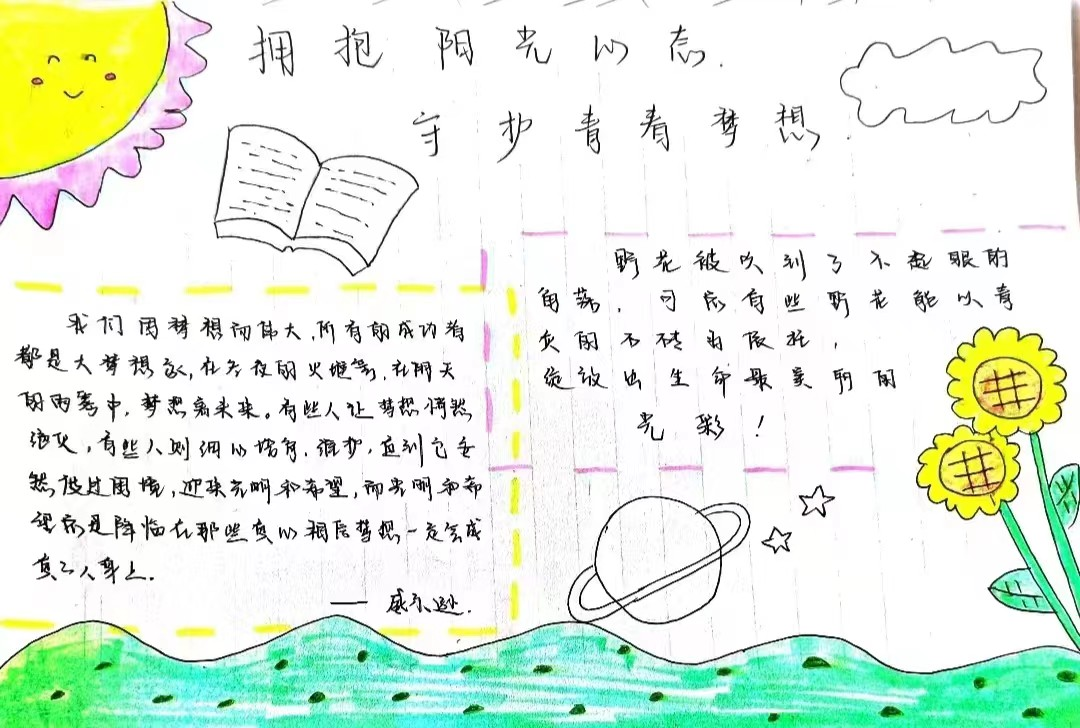 拥抱阳光心态.
守护青春梦想.
我们因梦想而伟大,所有的成功者
都是大梦想家,在冬夜的火堆旁,在阴天
的雨雾中,梦想着未来。有些人让梦想悄然
灭,有些人则细心培育,维护,直到它安
然度过困境,迎来光明和希望,而光明和希
望总是降临在那些真心相信梦想一定会成
真之人身上.
—— 威尔逊.
野花被吹到了不起眼的
角落,可总有些野花能以
的不 为依托,
绽放出生命最美丽的
光彩!